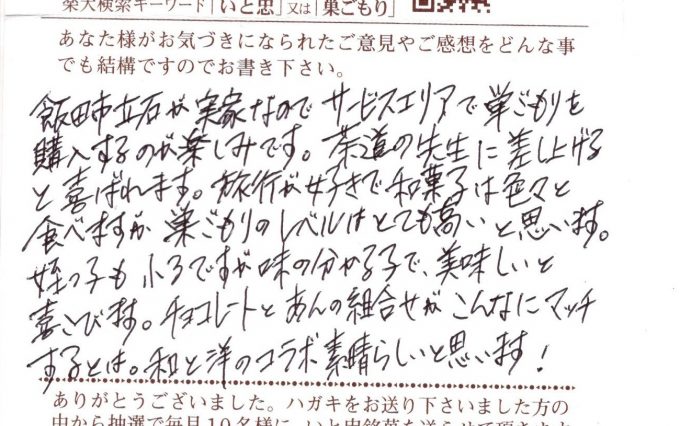 楽天検索キーワード「いと忠」又は「巣ごもり」
あなた様がお気づきになられたご意見やご感想をどんな事
でも結構ですのでお書き下さい。
飯田市立石が実家なので サービスエリアで巣ごもりを
購入するのが楽しみです。茶道の先生に差し上げる
と喜ばれます。旅行が好きで和菓子は色々と
食べますが 巣ごもりのレベルはとても高いと思います。
姪っ子も 小3ですが味の分かる子で、美味しいと
喜こびます。チョコレートとあんの組合せが こんなにマッチ
するとは。和と洋のコラボ 素晴らしいと思います!
ありがとうございました。ハガキをお送り下さいました方の
中から抽選で毎月10名様に、いと忠銘菓を送らせて頂きます